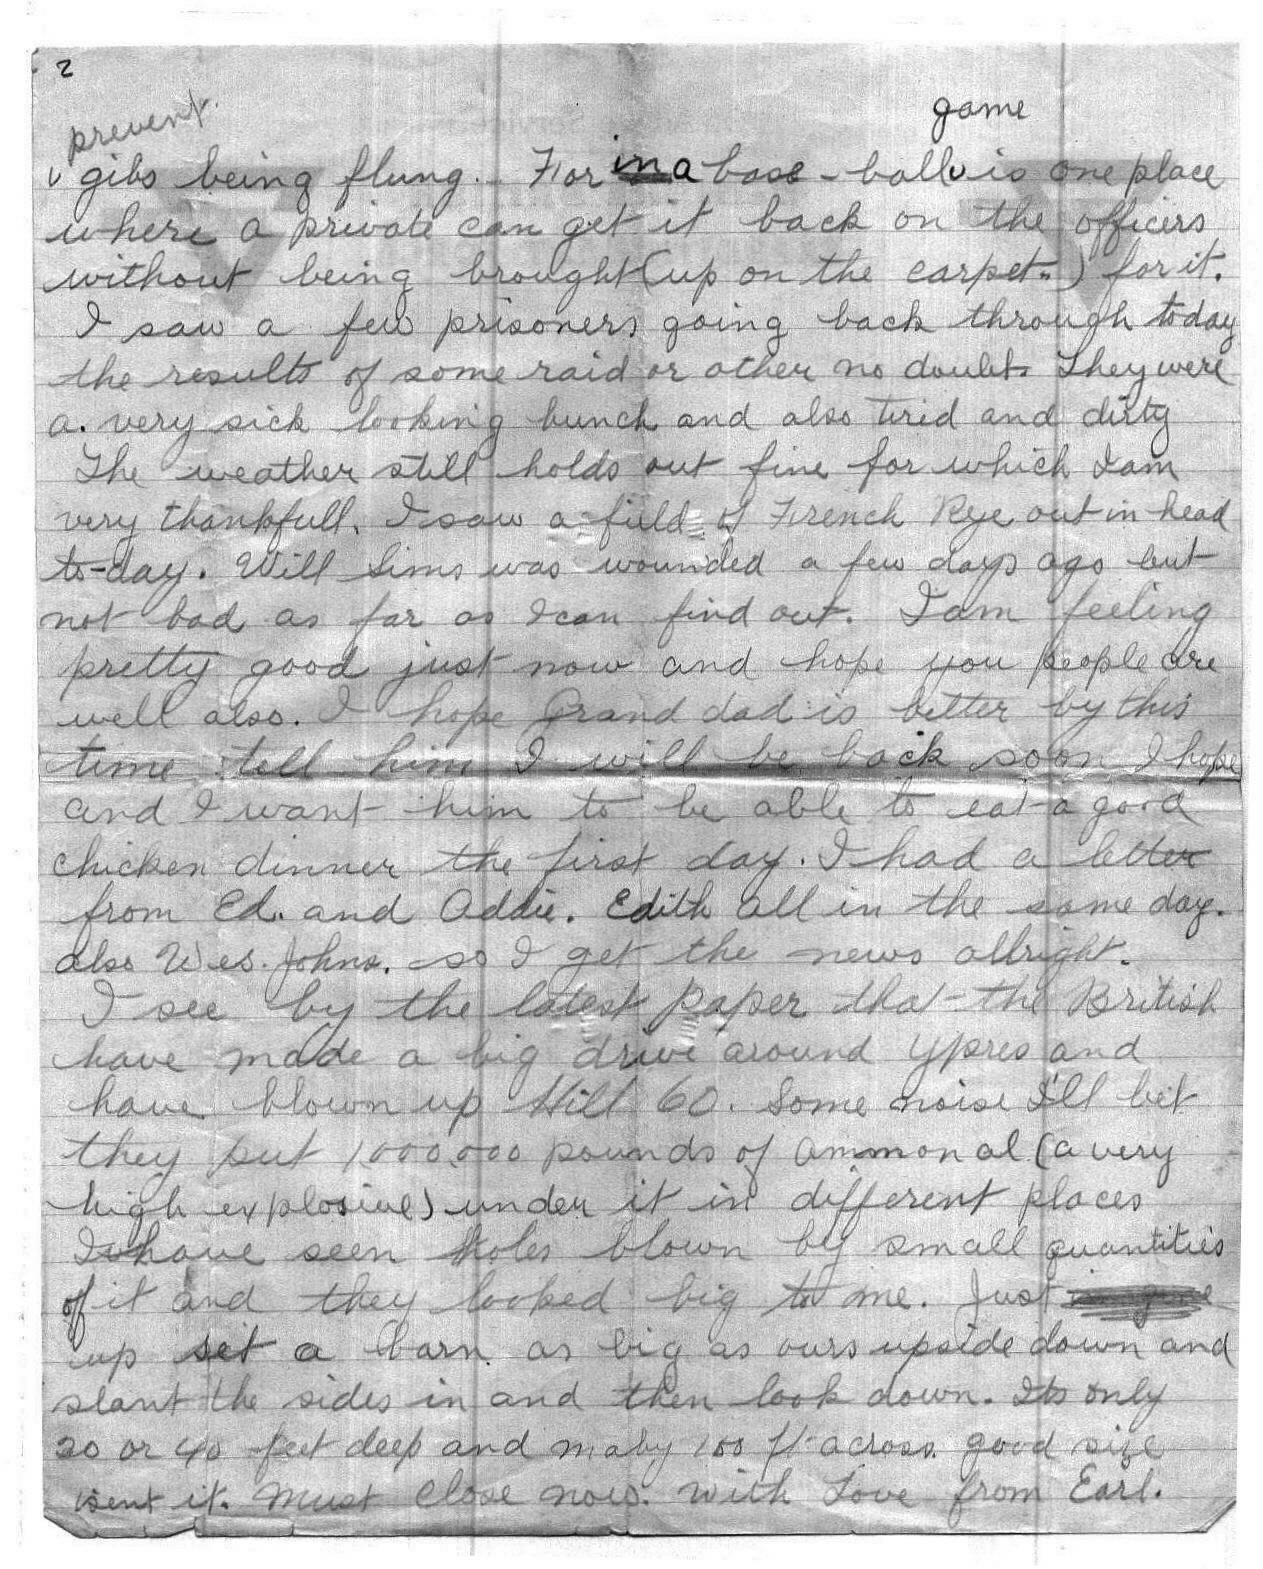 2
prevent game
v gibs being flung. For in a base-ball v is one place
where a private can get it back on the officers
without being brought (up on the carpet") for it.
I saw a few prisoners going back through today
the results of some raid or other no doubt. They were
a. very sick looking bunch and also tired and dirty
The weather still holds out fine for which I am
very thankfull. I saw a field of French Rye out in head
to-day. Will Sims was wounded a few days ago but
not bad as far as I can find out. I am feeling
pretty good just now and hope you people are
well also. I hope Grand dad is better by this
time tell him I will be back soon I hope
and I want him to be able to eat a good
chicken dinner the first day. I had a letter
from Ed. and Addie. Edith all in the same day.
also Wes. Johns. so I get the news allright.
I see by the latest paper that the British
have made a big drive around Ypres and
have blown up Hill 60. Some noise I'll bet
they put 1,000,000 pounds of ammonal (a very
high explosive) under it in different places
I have seen holes blown by small quantities
of it and they looked big to me. Just
up set a barn as big as ours upside down and
slant the sides in and then look down. Its only
30 or 40 feet deep and maby 100 ft across. good size
isent it. Must close now. With Love from Earl.